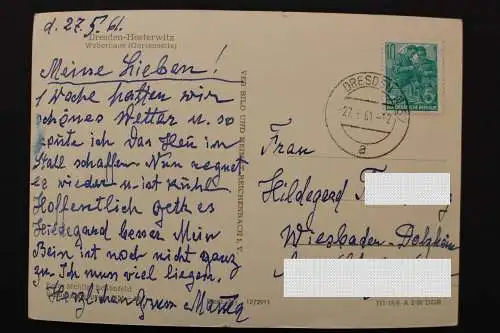 d. 27.5.61.
Dresden-Hosterwitz
Meine Lieben!
1 Woche hatten wir
schönes Wetter u. so
konnte ich das Heu im
Stall schaffen. Nun regnet
es wieder u. ist kühl.
Hoffentlich geht es
Hildegard besser. Mein
Bein ist noch nicht ganz
zu. Ich muss viel liegen.
Herzlichen Gruss Martha
VEB BILD UND HEIMAT REICHENBACH I. V.
12/2911
10
DRESDEN
27.5.61-12
a
Frau
Hildegard
Wiesbaden-Dotzheim
DDR